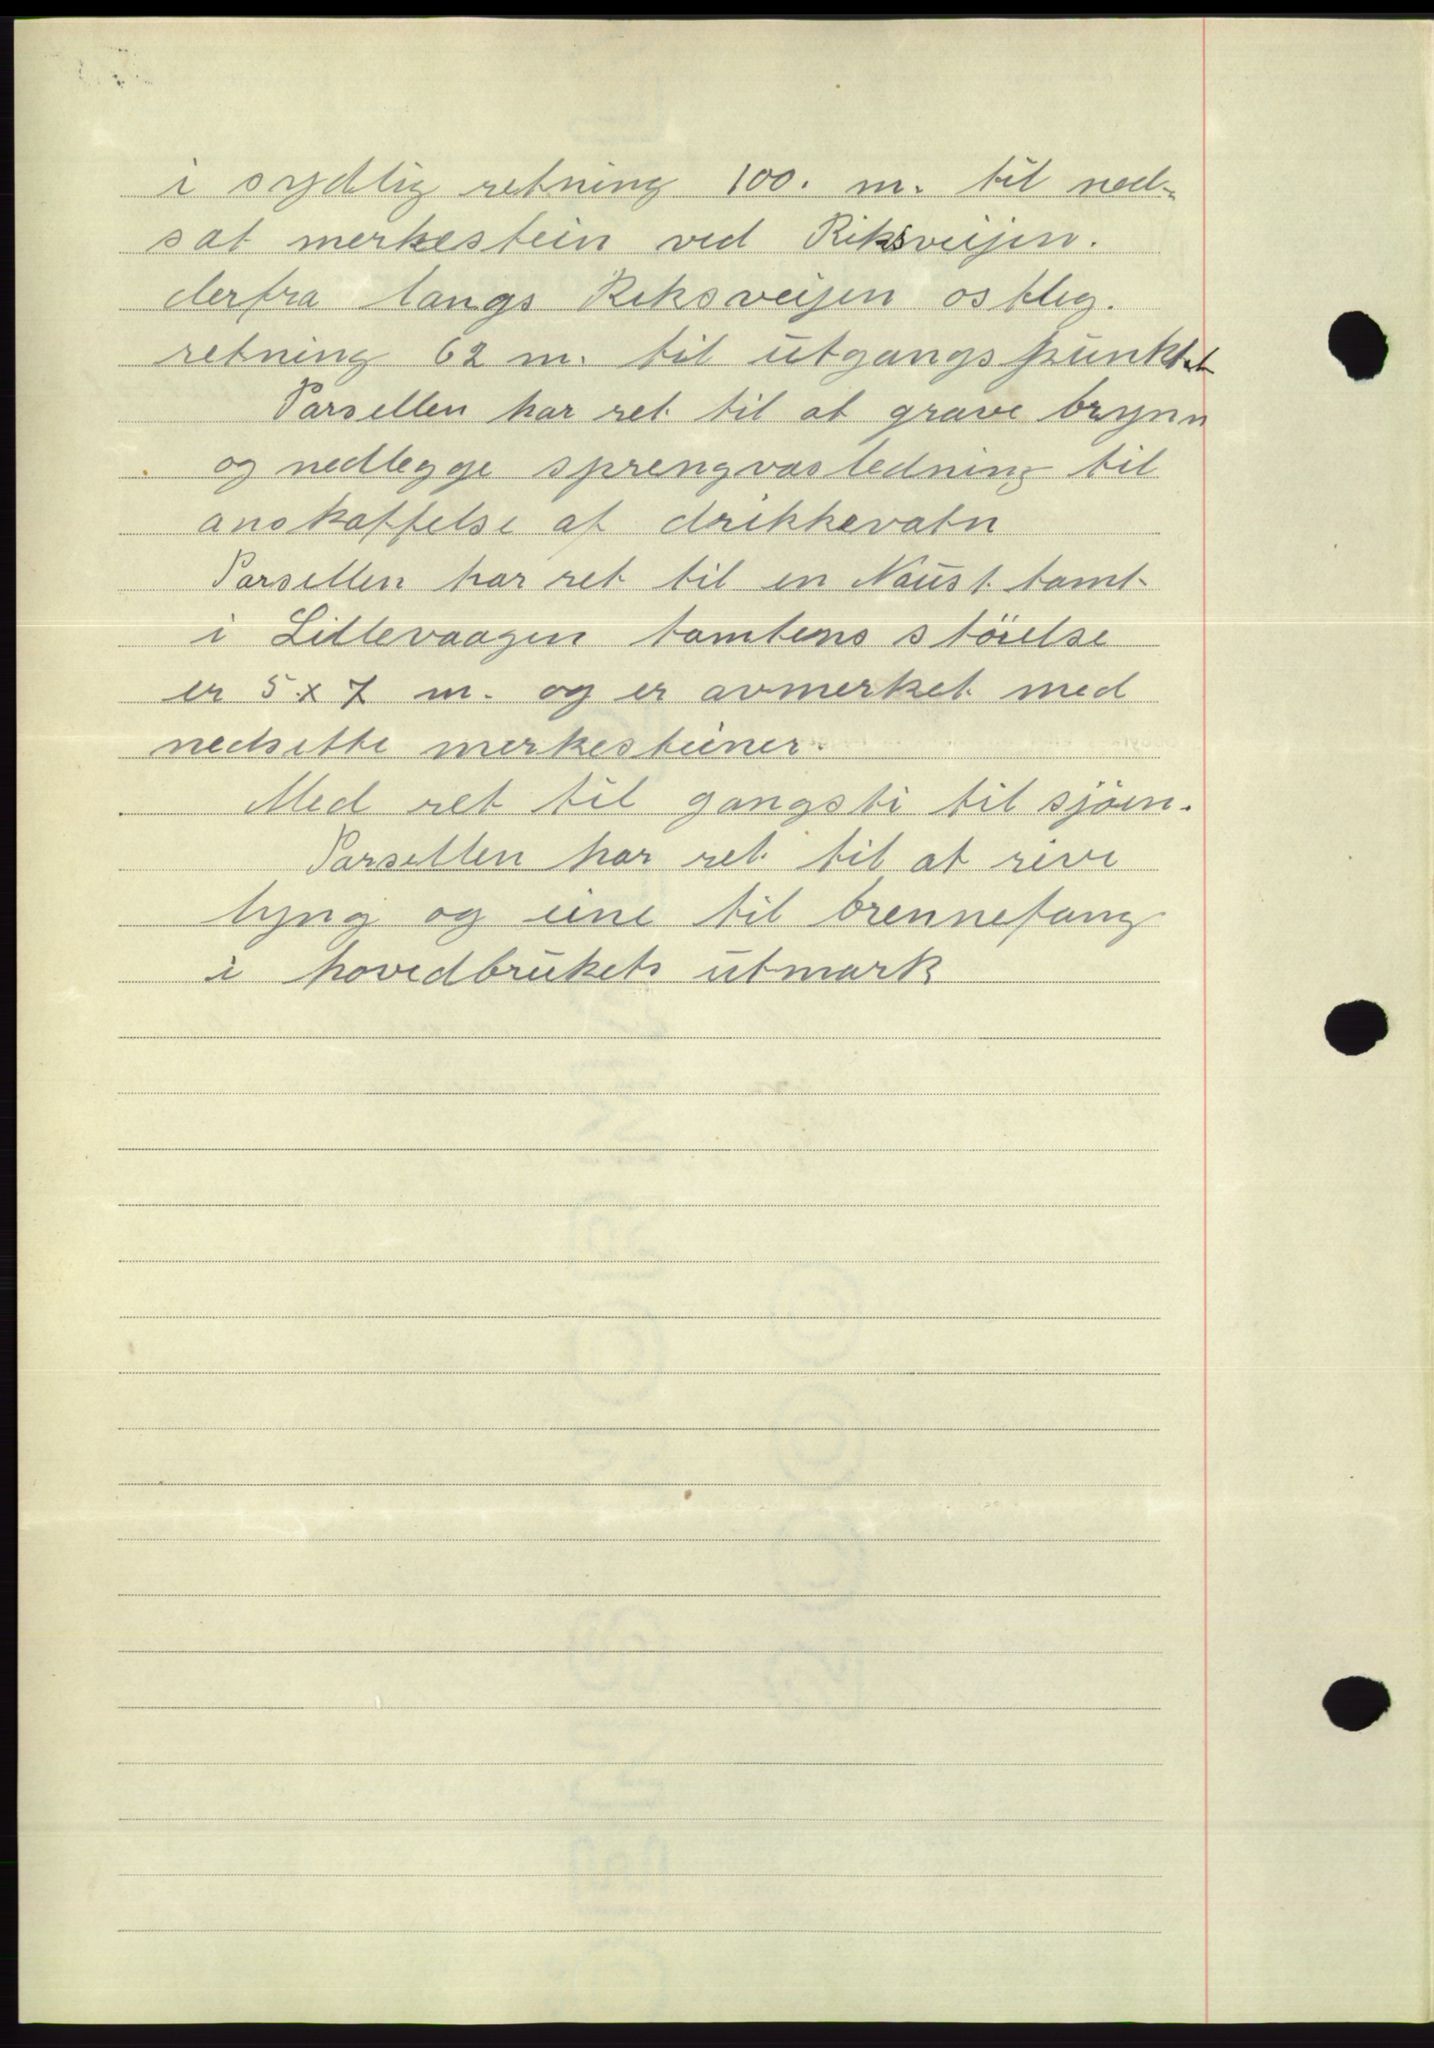 i sydlig retning 100. m. til ned-
sat merkestein ved Riksveijen.
derfra langs Reksveijen ostleg.
retning 62 m. til utgangspunktet
Parsellen har ret til at grave brynn
og nedlegge sprengvasledning til
anskaffelse af drikkevatn
Parsellen har ret til en Naust tamt
i Lillevaagen tamtens störelse
er 5 x 7 m. og er avmerket med
nedsette merkesteiner.
Med ret til gangsti til sjöen.
Parsellen har ret til at rive
lyng og eine til brennefang
i hovedbrukets utmark